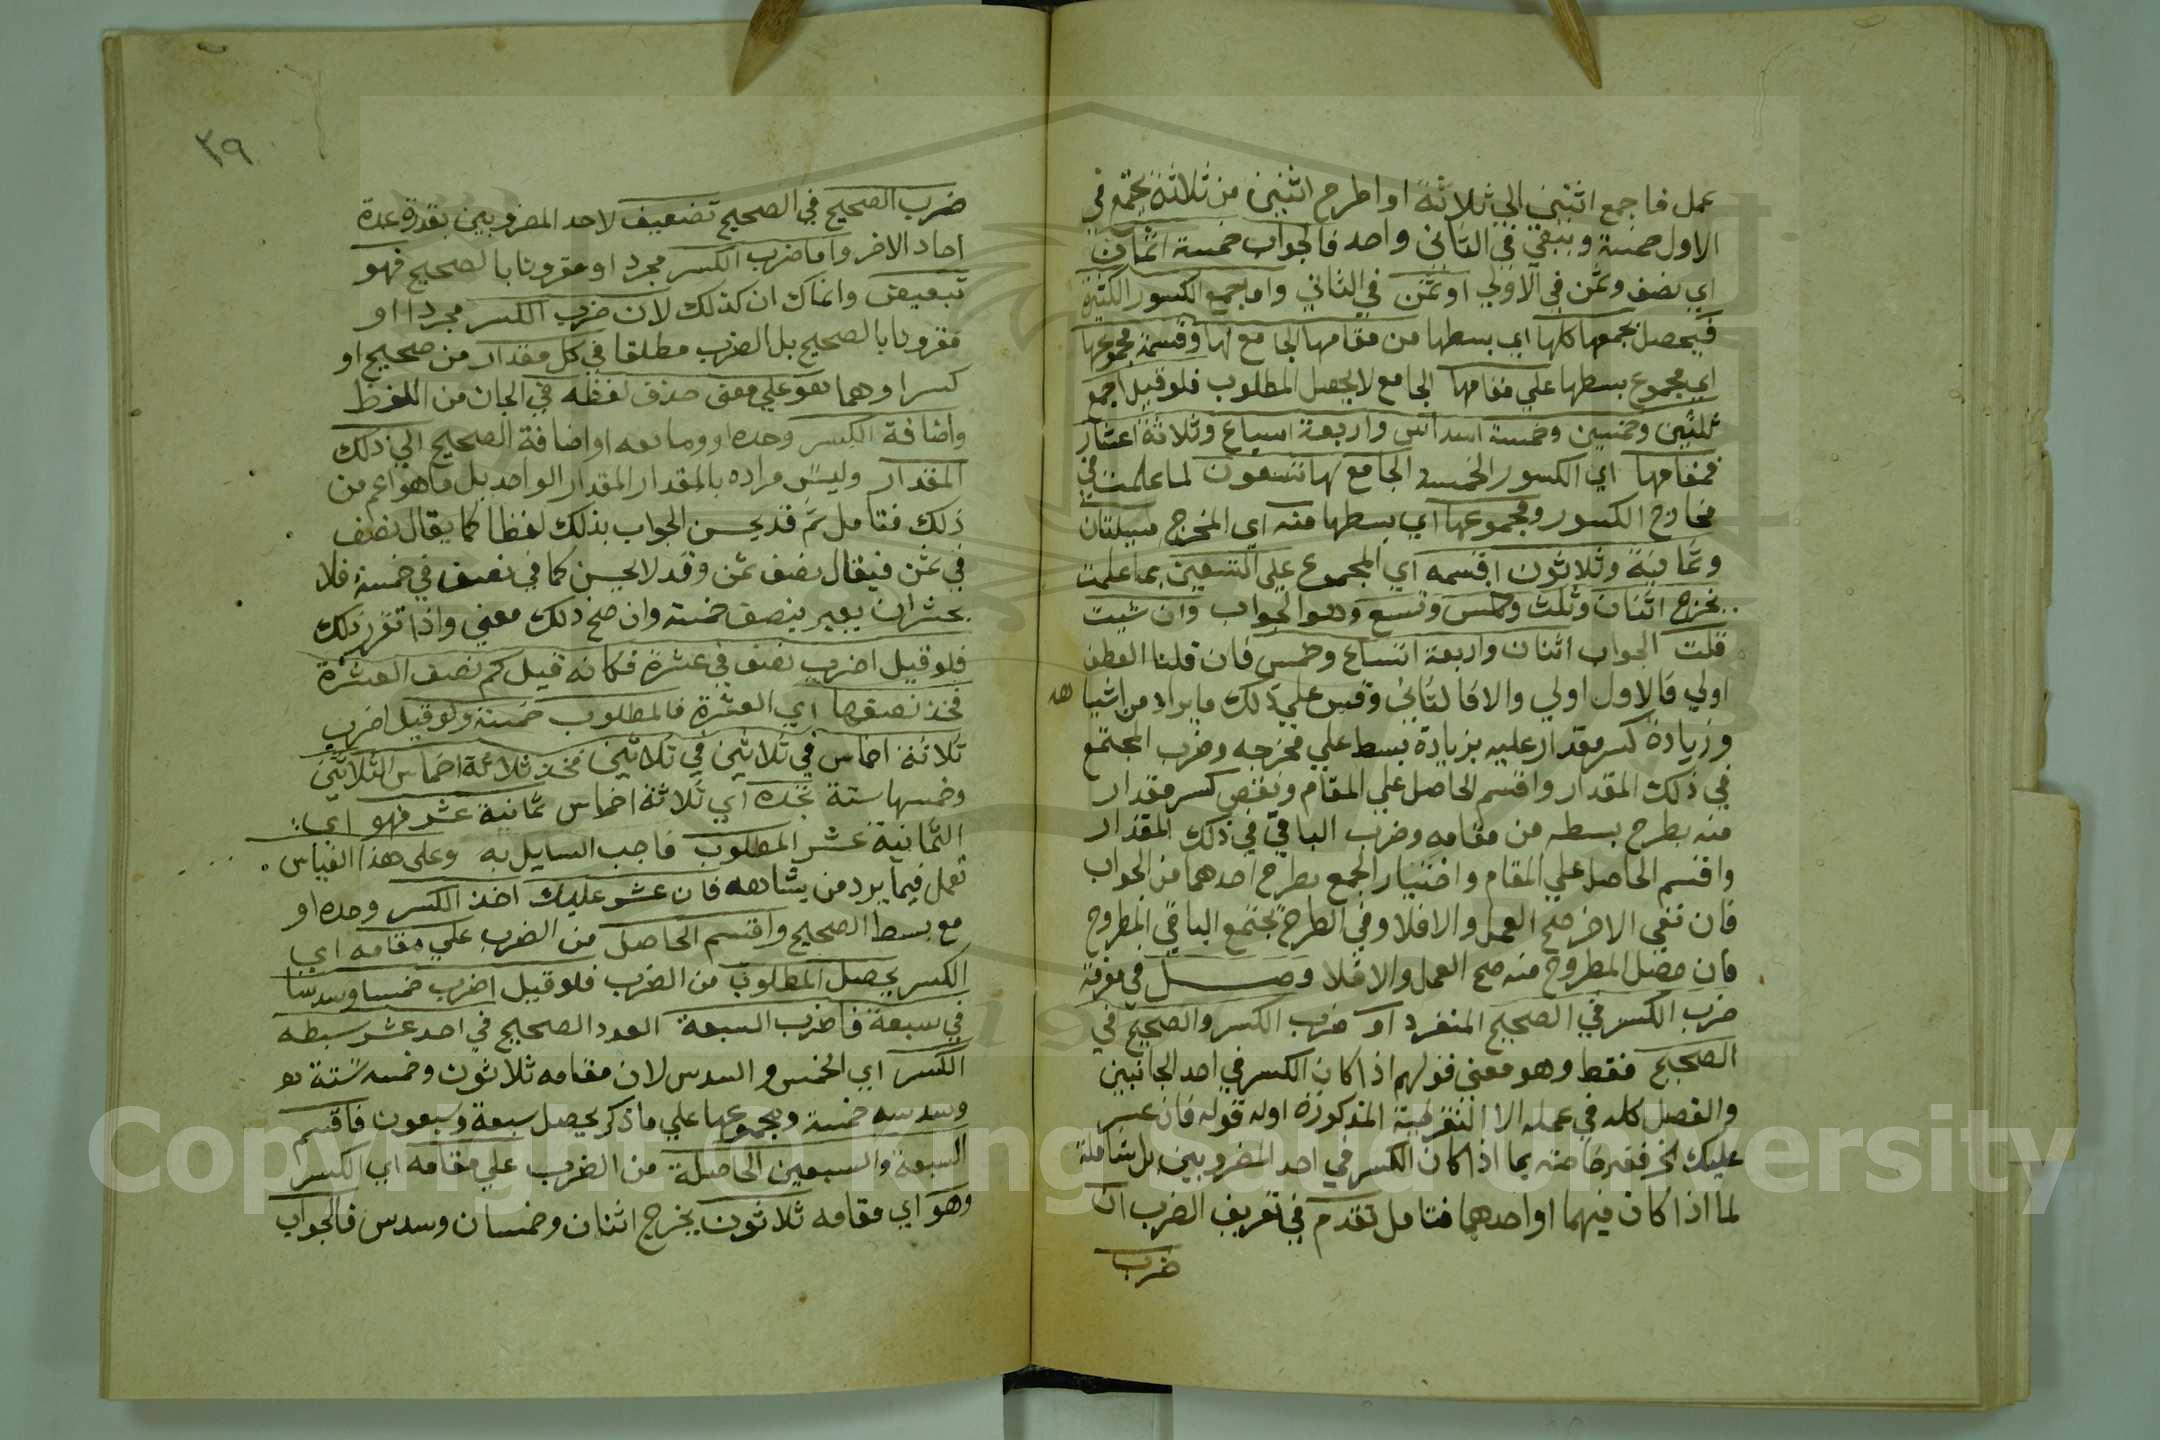 عمل فاجمع اثنين الي ثلاثة او اطرح اثنين من ثلاثة يجتمع في
الاول خمسة ويبقي في الثاني واحد فالجواب خمسة اثمان
اي نصف وثمن في الاولي او ثمن في الثاني واما جمع الكسور الكثيرة
فيحصل بجمعها كلها اي بسطها من مقامها الجامع لها وقسمة مجموعها
اي مجموع بسطها علي مقامها الجامع لا يحصل المطلوب فلو قيل اجمع
ثلثين وخمسين وخمسة اسداس واربعة اسباع وثلاثة اعشار
فمقامها اي الكسور الخمسة الجامع لها تسعون لما علمت في
مخارج الكسور ومجموعها اي بسطها منه اي المخرج مىيلتان
وثمانية وثلاثون اقسمه اي المجموع علي التسعين بما علمت
يخرج اثنان وثلث وخمس وتسع وهو الجواب وان شيت
قلت الجواب اثنان واربعة اتساع وخمس فان قلنا العطف
اولي فالاول اولي والا فالثاني وقس علي ذلك ما يراد من اشيا هه
وزيادة كسر مقدار عليه بزيادة بسط علي مخرجه وضرب المجتمع
في ذلك المقدار واقسم الحاصل علي المقام ونقص كسر مقدار
منه بطرح بسطه من مقامه وضرب الباقي في ذلك المقدار
واقسم الحاصل علي المقام واختبار الجمع بطرح احدهما من الجواب
فان نفي الاخر صح العمل والا فلا وفي الطرح بجمع الباقي المطروح
فان فضل المطروح منه صح العمل والا فلا وصـــل في معرفة
ضرب الكسر في الصحيح المنفرد او ضرب الكسر والصحيح في
الصحيح فقط وهو معني قولهم اذا كان الكسر في احد الجانبين
والفصل كله في عمله الا النفرقية المذكورة اوله قوله فان عسر
عليك الخ فغير خاصة بما اذا كان الكسر في احد المضروبين بل شاملة
لما اذا كان فيهما او احدهما فتامل تقدم في تعريف الضرب ان
ضرب
٣٩
ضرب الصحيح في الصحيح تضعيف لاحد المضروبين بقدر عدة
احاد الاخر واما ضرب الكسر مجردا او مقرونا بالصحيح فهو
تبعيض وانما كان كذلك لان ضرب الكسر مجردا او
مقرونا بالصحيح بل الضرب مطلقا في كل مقدار من صحيح او
كسر او هما هو علي معني حذف لفظه في الجان من اللفظ
واضافة الكسر وحده او وما معه او اضافة الصحيح الي ذلك
المقدار وليس مراده بالمقدار المقدار الواحد بل ما هو اعم من
ذلك فتامل ثم قد يحسن الجواب بذلك لفظا كما يقال نصف
في ثمن فيقال نصف ثمن وقد لا يحسن كما في نصف في خمسة فلا
يحسن ان يعبر بنصف خمسة وان صح ذلك معني واذا تقرر ذلك
فلو قيل اضرب نصف في عشرة فكانه قيل كم نصف العشرة
فخذ نصفها اي العشرة فالمطلوب خمسة ولو قيل اضرب
ثلاثة اخماس في ثلاثين في ثلاثين فخذ ثلاثة اخماس الثلاثين
وخمسها ستة تجده اي ثلاثة اخماس ثمانية عشر فهو اي
الثمانية عشر المطلوب فاجب السايل به وعلي هذا القياس
تعمل فيما يرد من يشابهه فان عسر عليك اخذ الكسر وحده او
مع بسط الصحيح واقسم الحاصل من الضرب علي مقامه اي
الكسر يحصل المطلوب من الضرب فلو قيل اضرب خمسا وسدسا
في سبعة فاضرب السبعة العدد الصحيح في احد عشر بسطه
الكسر اي الخمس والسدس لان مقامه ثلاثون وخمسه ستة
وسدسه خمسة ومجموعها علي ما ذكر يحصل سبعة وسبعون فاقسم
السبعة والسبعين الحاصلة من الضرب علي مقامه اي الكسر
وهو اي مقامه ثلاثون يخرج اثنان وخمسان وسدس فالجواب
Copyright © King Saud University